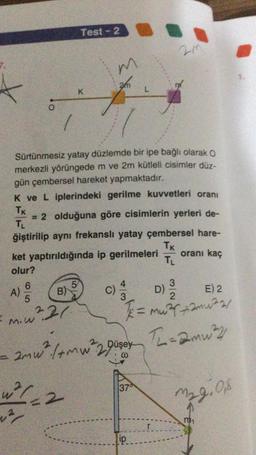 Test - 2
2m
7.
m
2m
m
K
L
O
1.
Sürtünmesiz yatay düzlemde bir ipe bağlı olarak O
merkezli yörüngede m ve 2m kütleli cisimler düz-
gün çembersel hareket yapmaktadır.
K ve L iplerindeki gerilme kuvvetleri oranı
T_K / T_L = 2 olduğuna göre cisimlerin yerleri de-
ğiştirilip aynı frekanslı yatay çembersel hare-
ket yaptırıldığında ip gerilmeleri T_K / T_L oranı kaç
olur?
A) 6/5 B) 5/4 C) 4/3 D) 3/2 E) 2
T_K = mw²r + 2mw²2r
m.w²2r
T_L = 2mw²2r
= 2mw²r + mw²2r
Düşey
ω
= 2
37°
m₂g.0,8
m₁
r
ip